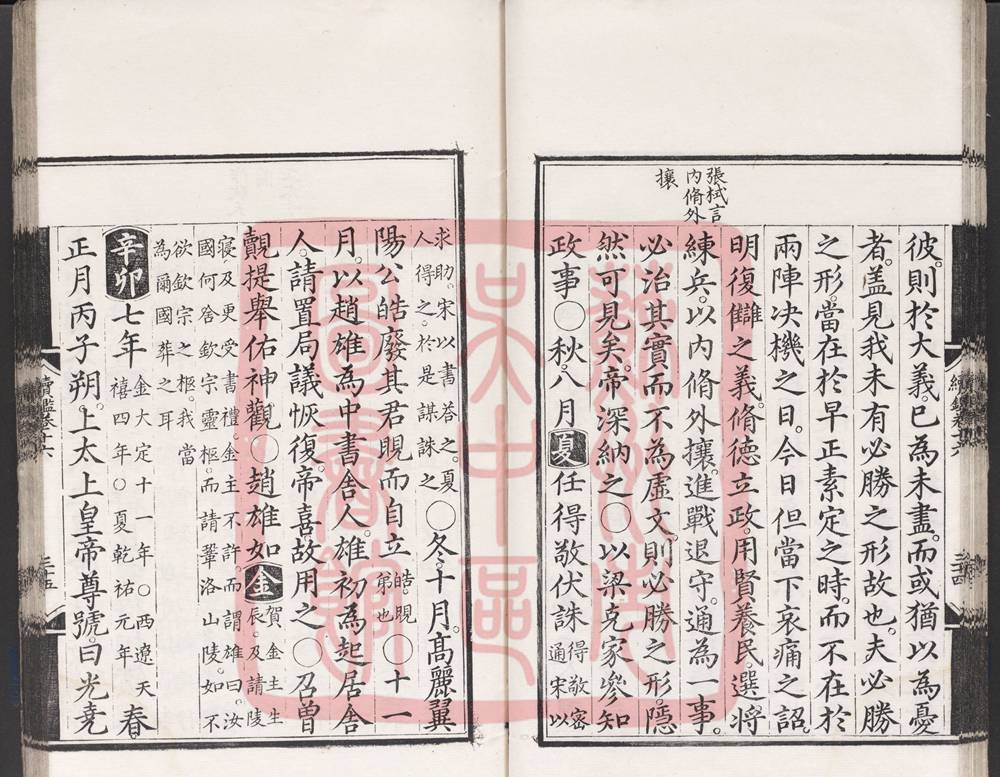 張栻言
内脩外
攘
彼。則於大義。已為未盡。而或猶以為憂
者。盖見我未有必勝之形故也。夫必勝
之形。當在於早正素定之時。而不在於
兩陣决機之日。今日但當下哀痛之詔。
明復讎之義。脩德立政。用賢養民。選將
練兵。以内脩外攘。進戰退守。通為一事。
必治其實而不為虚文。則必勝之形隱
然可見矣。帝深納之〇以梁克家參知
政事〇秋。八月夏任得敬伏誅得敬密通宋以
求助。宋以書荅之。夏人得之。於是謀誅之〇冬。十月。高麗翼
陽公皓廢其君晛而自立皓。晛弟也〇十一
月。以趙雄為中書舍人。雄初為起居舍
人。請置局議恢復。帝喜。故用之〇召曾
覿提舉佑神觀〇趙雄如金賀金主生辰。及請陵
寢及更受書禮。金主不許。而謂雄曰。汝
國何舍欽宗靈柩。而請鞏洛山陵。如不
欲欽宗之柩。我當
為爾國葬之耳
辛卯七年金大定十一年〇西遼天禧四年〇夏乾祐元年春
正月丙子朔。上太上皇帝尊號。曰光堯
續鑑卷十六
三十五
吳中區
圖書館